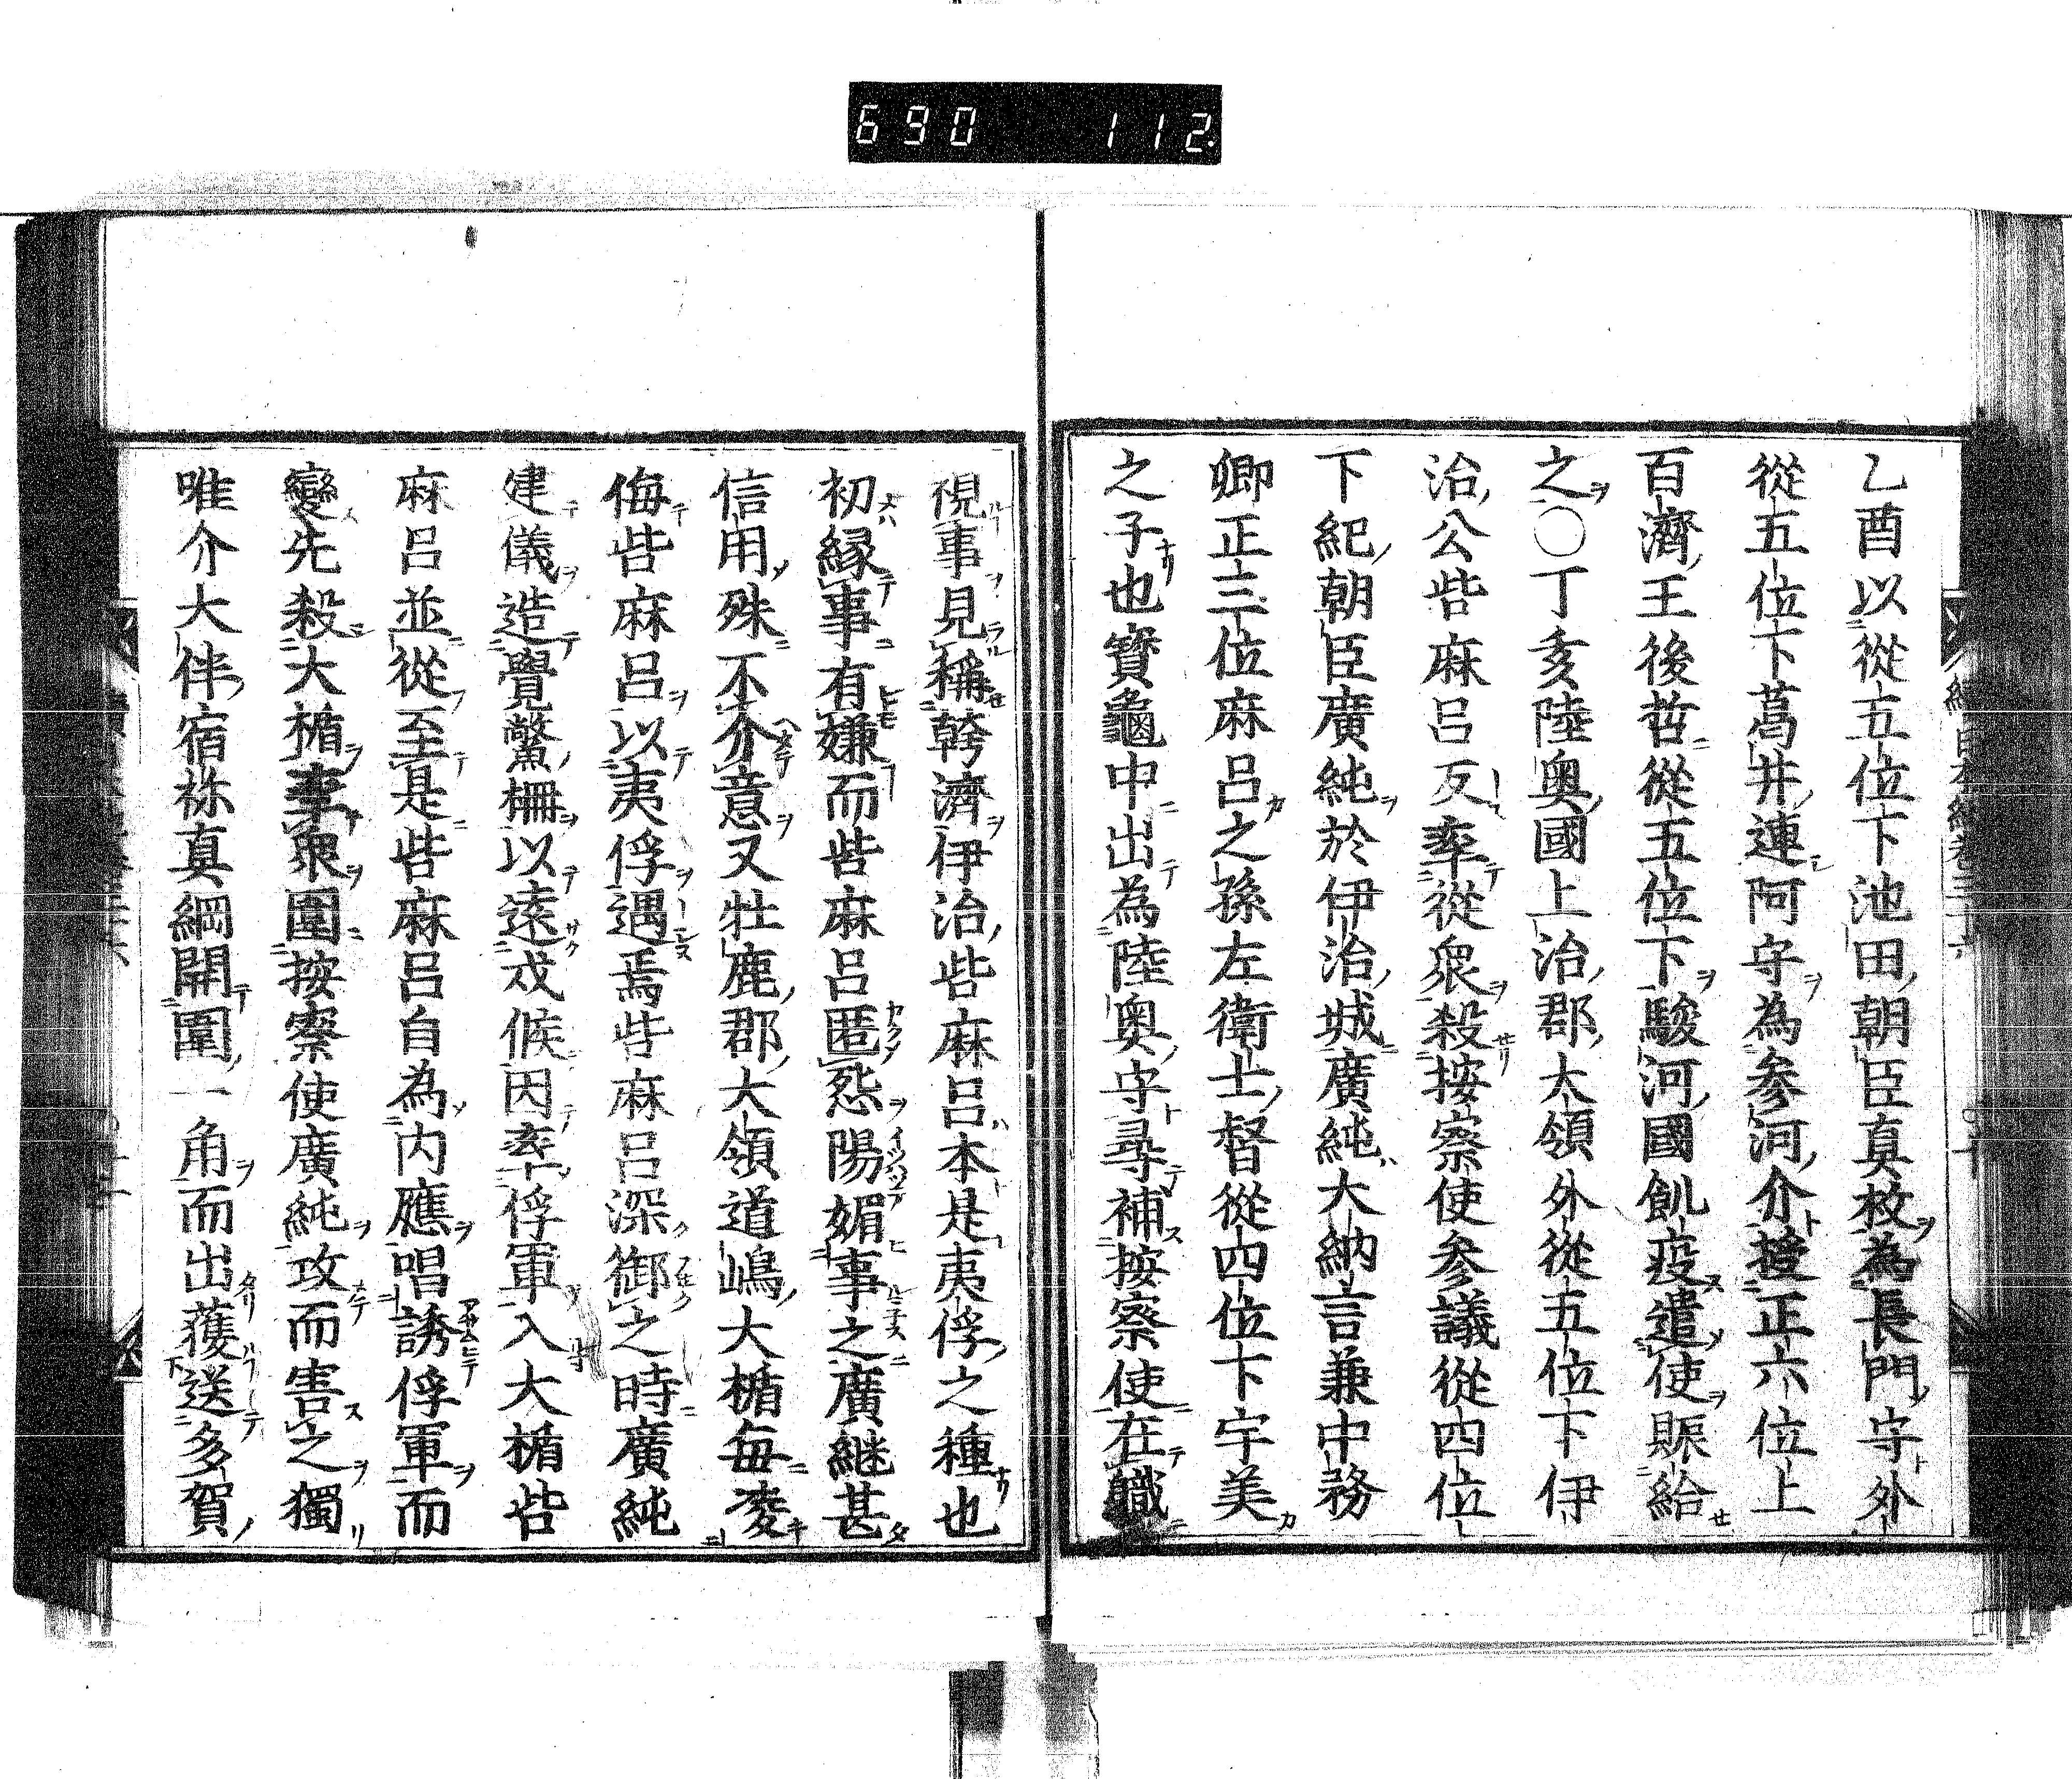 690 112.
乙酉以從五位下池田朝臣真枚為長門守外
從五位下葛井連阿守為參河介授正六位上
百濟王後哲從五位下駿河國飢疫遣使賑給
之〇丁亥陸奧國上治郡大領外從五位下伊
治公呰麻呂反率從衆殺按察使參議從四位
下紀朝臣廣純於伊治城廣純大納言兼中務
卿正三位麻呂之孫左衛士督從四位下宇美
之子也寶龜中出為陸奧守尋補按察使在職
視事見稱幹濟伊治呰麻呂本是夷俘之種也
初緣事有嫌而呰麻呂匿怨陽媚事之廣継甚
信用殊不介意又牡鹿郡大領道嶋大楯每凌
侮呰麻呂以夷俘遇焉呰麻呂深銜之時廣純
建儀造覺鱉柵以遠戍候因率俘軍入大楯呰
麻呂並從至是呰麻呂自為内應唱誘俘軍而
變先殺大楯率衆圍按察使廣純攻而害之獨
唯介大伴宿祢真綱開圍一角而出獲送多賀